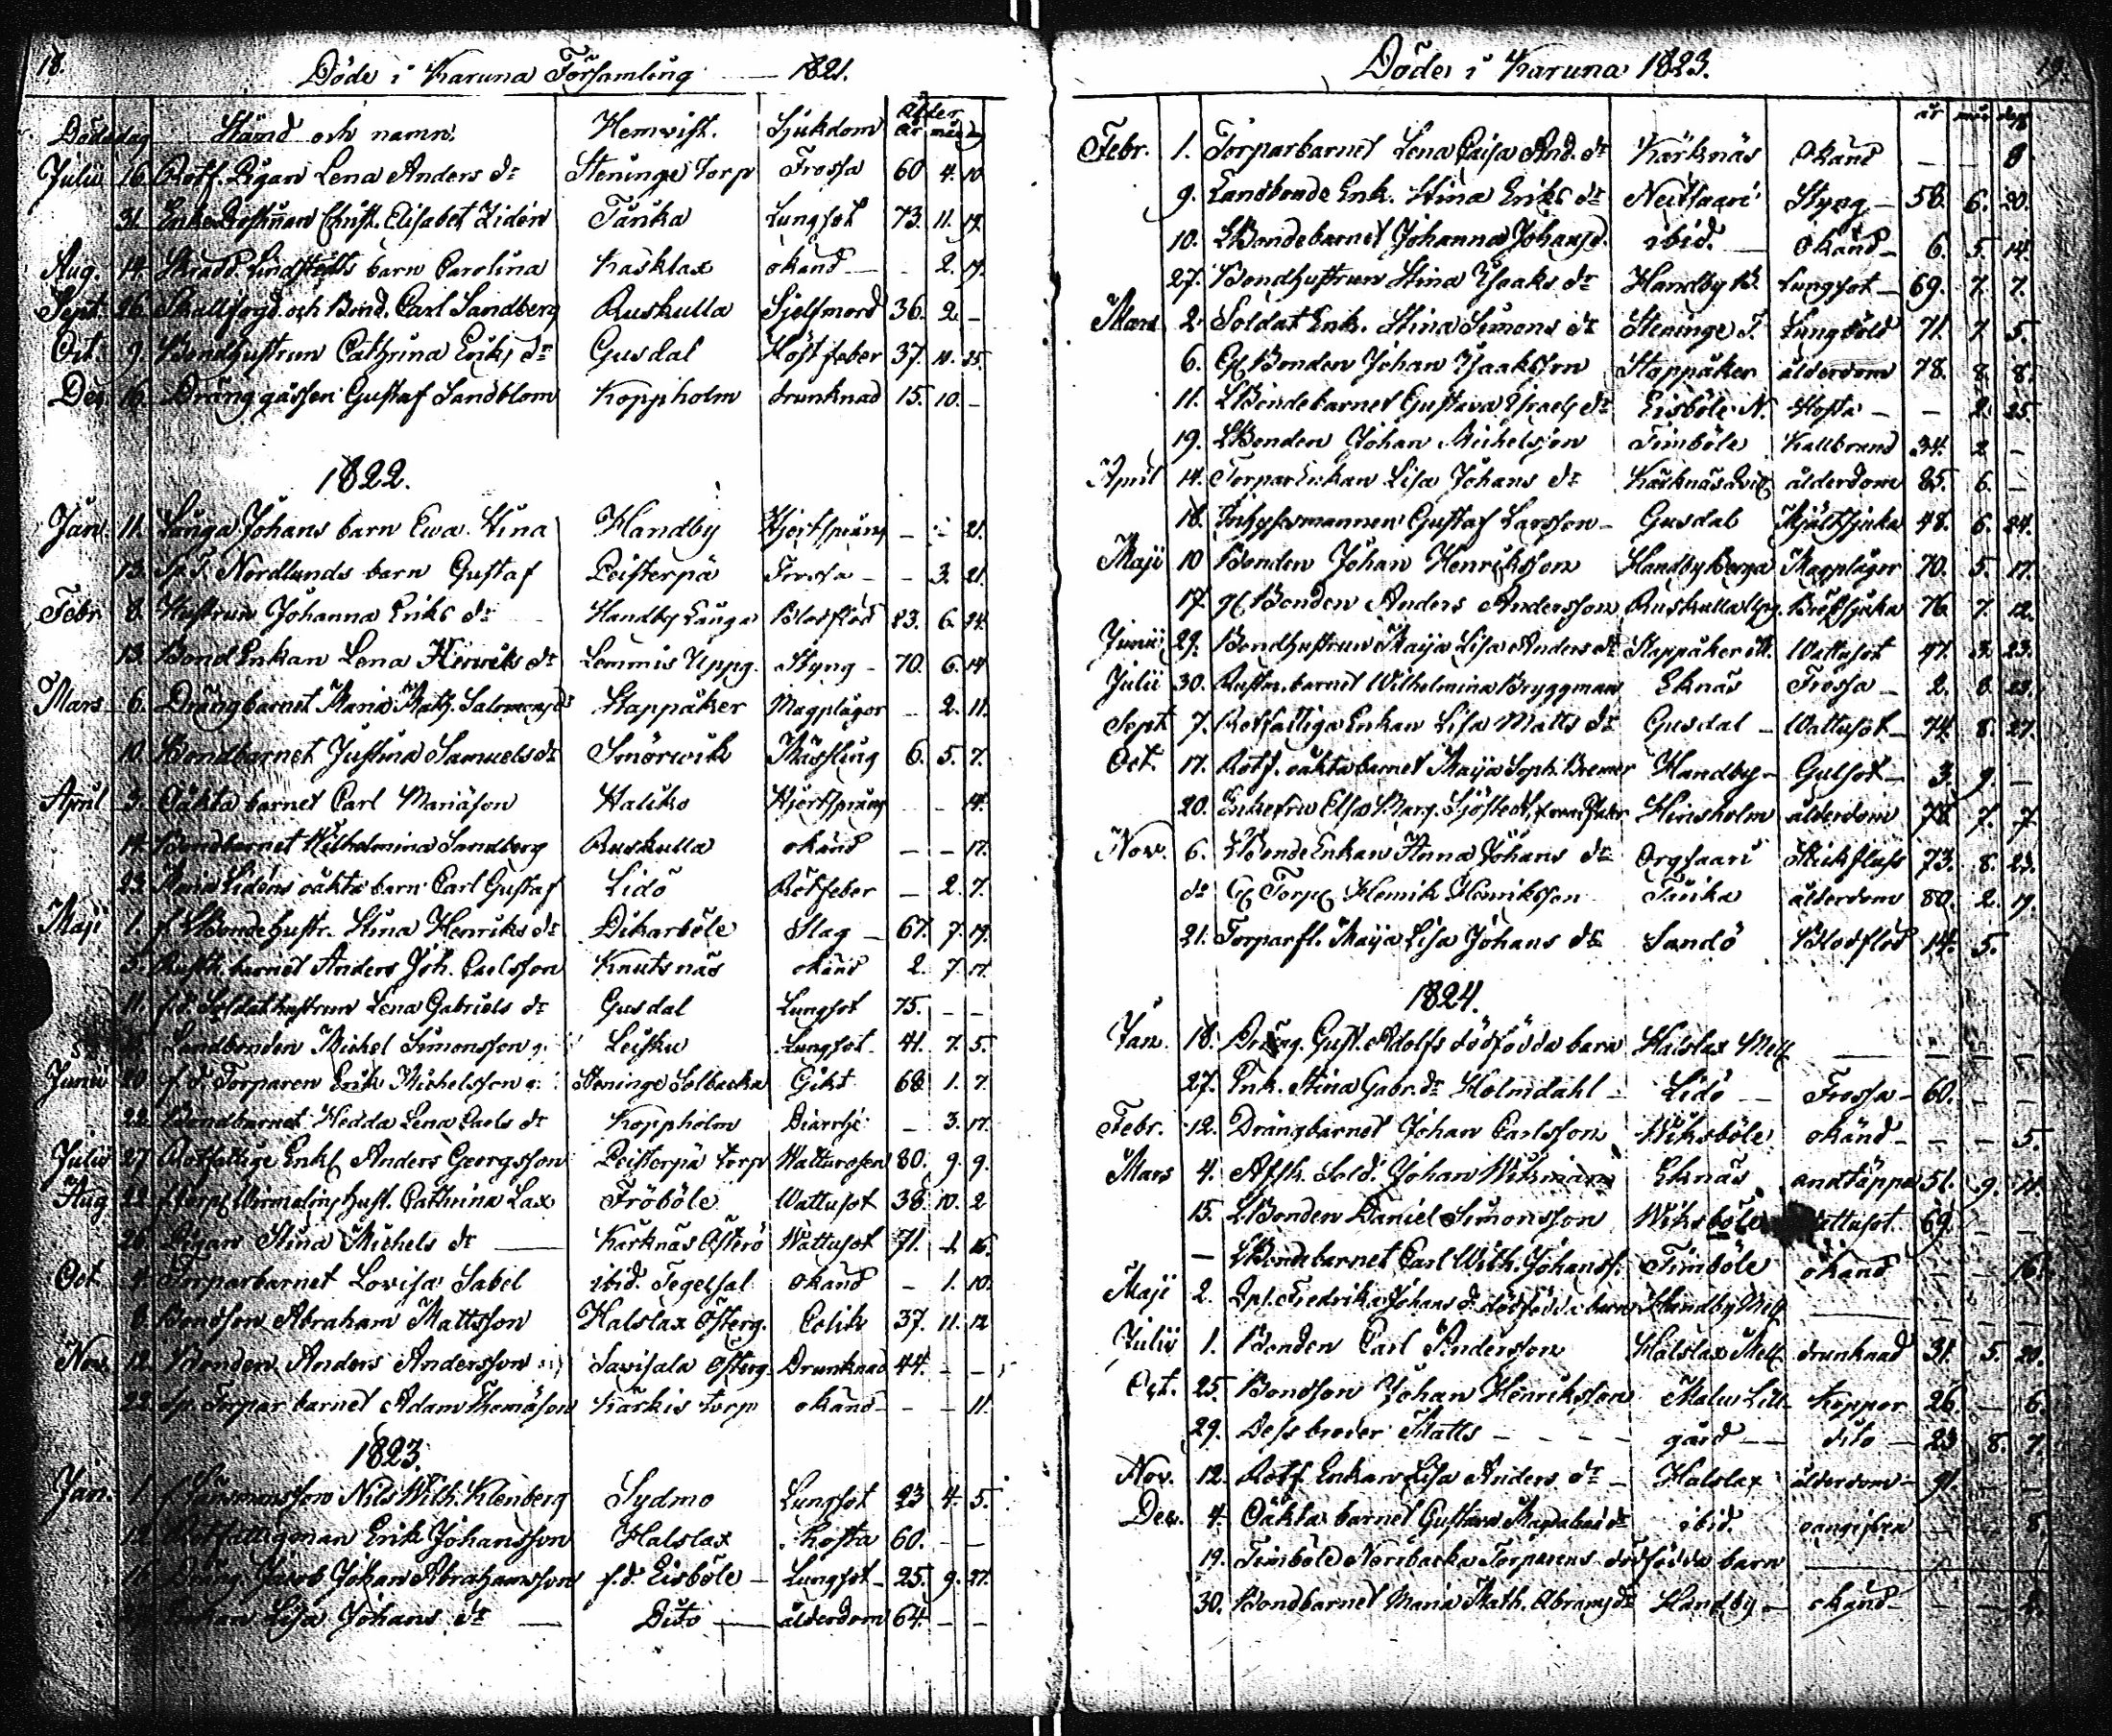 18.
Döde i Karuna Församling 1821.
Dödsdag Stånd och namn. Hemvist. Sjukdom Ålder år mån dag
Julii 16. Rotf. Pigan Lena Anders dr Steninge Torp Frossa 60 4. 10
31. Christ. Elisabet Lidén Tånka Lungsot 73. 11. 19.
Aug. 14. Skradd. Lindstedts barn Carolina Kasklax okänd - 2. 17.
Sept. 26. Skallfogd. och Bond. Carl Sandberg Ruskulla Sjelfmord 36. 2. -
Oct. 9. Bondhustrun Cathrina Eriks dr Gusdal Höstfeber 37. 10. 25.
Dec. 16. Dräng gåssen Gustaf Sandblom Koppholm drunknad 15. 10. -
1822.
Jan. 11. Långa Johans barn Ewa Stina Handby Hjertsprång - - 21.
13. Nordlunds barn Gustaf Peisterpä Frossa - - 3. 21.
Febr. 8. Hustrun Johanna Eriks dr Handby Långa Blodflod 23. 6. 24.
13. Bond Enkan Lena Henriks dr Lemmis Uppg. Styng - 70. 6. 14
Mars 6. Drängbarnet Maria Math. Salomonsdr Stappåker Magplågor - 2. 11.
10. Bondbarnet Justina Samuels dr Smörwik Mässling 6. 5. 7.
April 3. Oäkta barnet Carl Mariäson Haliko Hjertsprång - - 14.
14. Bondbarnet Wilhelmina Sandberg Ruskulla okänd - - 17.
23. Maria Lidéns oäkta barn Carl Gustaf Lidö Rötfeber - 2. 7.
Maji 1. f. LBondehustr. Stina Henriks dr Dikarböle Slag - 67. 7. 19.
5. Rusth. barnet Anders Joh. Carlsson Knutsnäs okänd 2. 7. 17.
11. f.d. Soldathustrun Lena Gabriels dr Gusdal Lungsot 75. - -
Landbonden Michel Simonsson Leisku Lungsot 41. 7. 5.
Junii 20. f.d. Torparen Erik Michelsson Steninge Solbacka Gikt 68 1. 7.
22. Bondbarnet Hedda Lena Carls dr Koppholm Diarrhé - 3. 17.
Julii 27. Rotfattige Enkl. Anders Georgsson Peisterpä torp Watturosen 80. 9. 9.
Aug. 22. Hust. Cathrina Lax Fröböle Wattusot 38. 10. 2
26. Pigan Stina Michels dr Karknäs Österö Wattusot 71. 1. 16.
Oct. 4. Torparbarnet Lovisa Sabel ibid. Tegelsal okänd - 1. 10.
8. Bondson Abraham Mattsson Halslax Österg. Colik 37. 11. 12
Nov. 12. Bonden Anders Andersson Savisala Österg. Drunknad 44. - -
22. Sp. Torpar barnet Adam Thomäson Karkis torp okänd - - 11.
1823.
Jan. 1. f. Länsmansson Nils Wilh. Klenberg Sydmo Lungsot 23. 4. 5.
12. Rotfattigman Erik Johansson Halslax Rosta 60. - -
16. Dräng. Jacob Johan Abrahamsson f.d. Eisböle - Lungsot - 25. 9. 27.
Enkan Lisa Johans dr Dito ålderdom 64. - -
Döde i Karuna 1823. 19.
år mån dag
Febr. 1. Torparbarnet Lena Caisa And. dr Karknäs Okänd - - 8
9. Landbonde Enk. Stina Eriks dr Neitsaari Styng - 58. 6. 20.
10. LBondebarnet Johanna Johansd. ibid. okänd - 6. 5. 14.
27. Bondhustrun Stina Isaaks dr Handby B. Lungsot - 69. 7. 7.
Mars 2. Soldat Enk. Stina Simons dr Steninge T. Lungböld 71. 7. 5.
6. Gl Bonden Johan Isaaksson Stappåker ålderdom 78. 8. 8.
11. LBondebarnet Gustava Israels dr Eisböle N. Hosta - - 2. 25.
19. LBonden Johan Michelsson Timböle Kallbrand 34. 2 -
April 14. Torpar Enkan Lisa Johans dr Karknäs ålderdom 85. 6. -
18. Inhysesmannen Gustaf Larsson - Gusdal Mjältsjuka 48. 6. 24.
Maji 10 Bonden Johan Henriksson Handby Berga Magplågor 70. 5. 17.
17. gl Bonden Anders Andersson Ruskulla Upg. Bröstsjuka 76. 7. 12.
Junii 29. Bondhustrun Maija Lisa Anders dr Stappåker Wattusot 47. 2. 23.
Julii 30. Rusth. barnet Wilhelmina Bryggman Eknäs Frossa - 2. 8. 23.
Sept. 7. Rotfattiga Enkan Lisa Matts dr Gusdal - Wattusot - 74. 8. 27.
Oct. 17. Rotf. oäkta barnet Maija Soph. Bremer Handby - Gulsot - 3. 9. -
20. Enkefru Elsa Marg. Sjöstedt Hinsholm ålderdom 78. 7. 7.
Nov. 6. LBonde Enkan Anna Johans dr Orgsaari Stickfluss 73. 8. 23.
dr Gl Torp. Henrik Henriksson Tånka ålderdom 80. 2. 19.
21. Torparfl. Maija Lisa Johans dr Sandö Blodflod 14. 5.
1824.
Jan. 18. Dräng. Gust. Adolfs dödfödda barn Halslax Mell.
27. Enk. Stina Gabr. dr Holmdahl - Lidö - Frossa - 60. - -
Febr. 12. Drängbarnet Johan Carlsson Wiksböle okänd - - - 5.
Mars 4. Afsk. Sold. Johan Wikman Eknäs andtäppa 51. 9. 11.
15. LBonden Daniel Simonsson Wiksböle Wattusot. 69. - -
- LBondebarnet Carl Wilh. Johanss. Timböle okänd - - 16.
Maji 2. Fredrika Johans dr dödfödda barn Handby Mellg.
Julii 1. Bonden Carl Andersson Halslax Mell. drunknad 31. 5. 20.
Oct. 25. Bondson Johan Henriksson Malu Lill- Koppor 26. - 6.
29. Dess broder Matts - - - - gård - dito - 23 8. 7.
Nov. 12. Rotf. Enkan Lisa Anders dr - Halslax ålderdom - 91. - -
Dec. 4. Oäkta barnet Gustava Magdalenä dr ibid. oangifven - - 8.
19. Timböle Norrbacka Torparens dödfödda barn
30. Bondbarnet Maria Math. Abramsdr Handby - okänd - - -